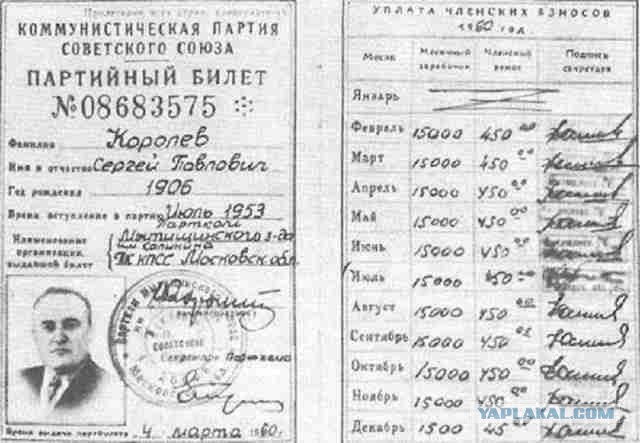 Пролетарии всех стран, соединяйтесь!
КОММУНИСТИЧЕСКАЯ ПАРТИЯ
СОВЕТСКОГО СОЮЗА
ПАРТИЙНЫЙ БИЛЕТ
№08683575
Фамилия Королев
Имя и отчество Сергей Павлович
Год рождения 1906
Время вступления в партию Июль 1953
Парткой
Наименование организации, выдавшей билет
Мытищинского з-да
им Калинина
КПСС Московск обл.
Секретарь Парткома
Время выдачи партбилета 4 марта 1960 г.
УПЛАТА ЧЛЕНСКИХ ВЗНОСОВ
1960 год
Месяц Месячный заработок Членский взнос Подпись секретаря
Январь
Февраль 15000 450 00
Март 15000 450 00
Апрель 15000 450 00
Май 15000 450 00
Июнь 15000 450 00
Июль 15000 450 00
Август 15000 450 00
Сентябрь 15000 450 00
Октябрь 15000 450 00
Ноябрь 15000 450 00
Декабрь 1500 45
YAPLAKAL.COM